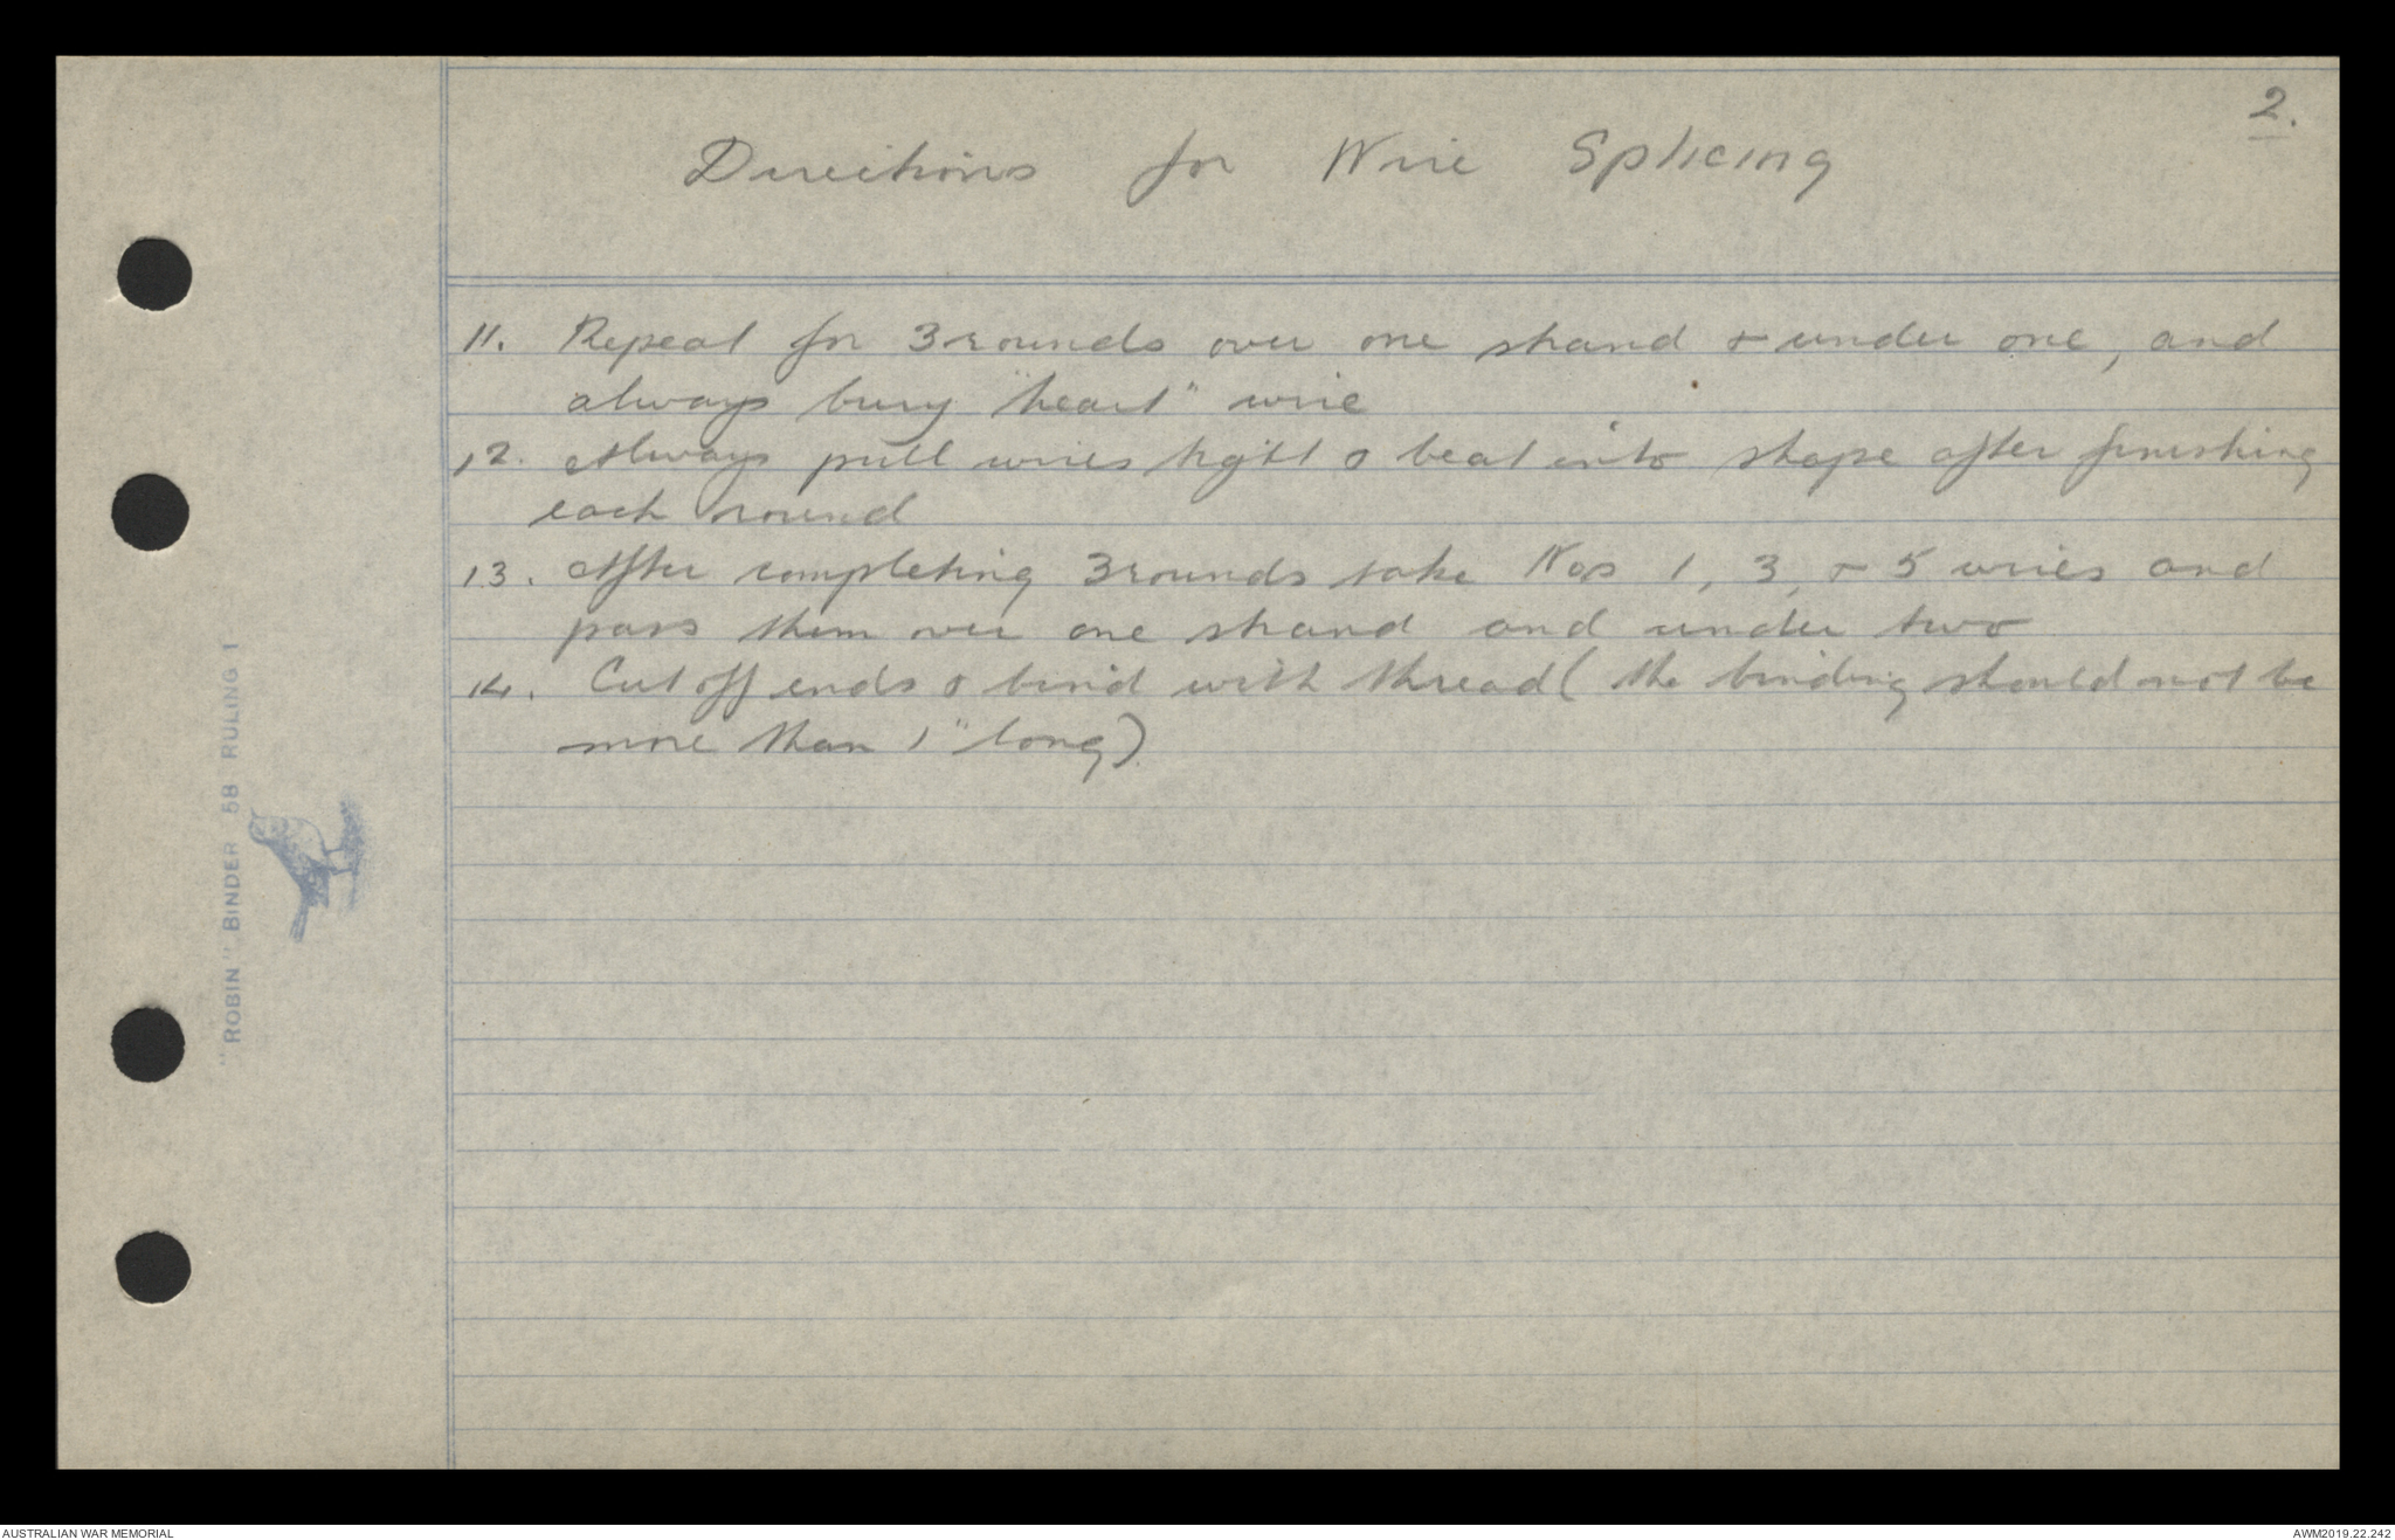 2.
Directions for Wire Splicing
11. Repeat for 3 rounds over one strand & under one, and
always bury "heart" wire
12. Always pull wires tight & beat into shape after finishing
each round
13. After completing 3 rounds take Nos 1, 3, & 5 wires and
pass them over one strand and under two
14. Cut off ends & bind with thread ( the binding should not be
more than 1" long)
"ROBIN" BINDER 5B RULING 1
AUSTRALIAN WAR MEMORIAL
AWM2019.22.242